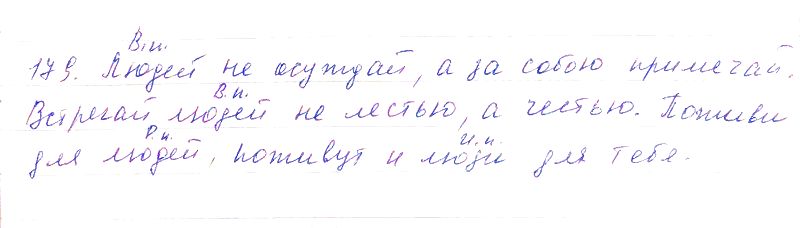 В.п.
179. Людей не осуждай, а за собою примечай.
В.п.
Встречай людей не лестью, а честью. Поживи
Р.п. И.п.
для людей, поживут и люди для тебя.